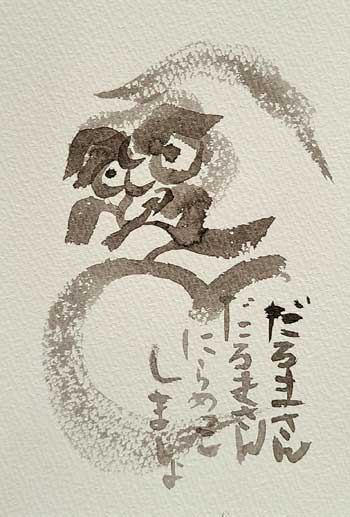 だるまさん
だるまさん
にらめっこ
しましょ